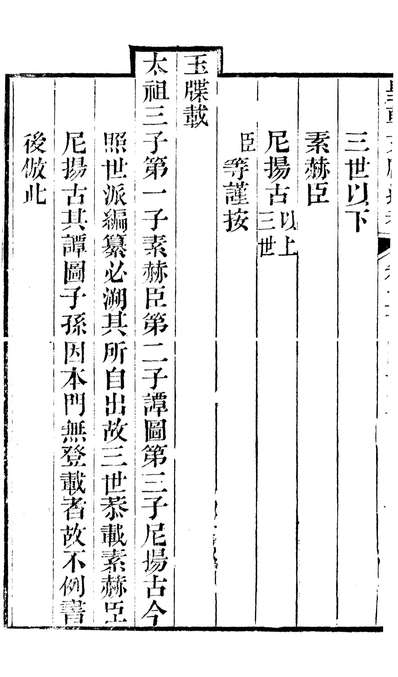 三世以下
素赫臣
尼揚古以上三世
臣等謹按
玉牒載
太祖三子第一子素赫臣第二子譚圖第三子尼揚古今
照世派編纂必溯其所自出故三世恭載素赫臣
尼揚古其譚圖子孫因本門無登載者故不例書
後倣此